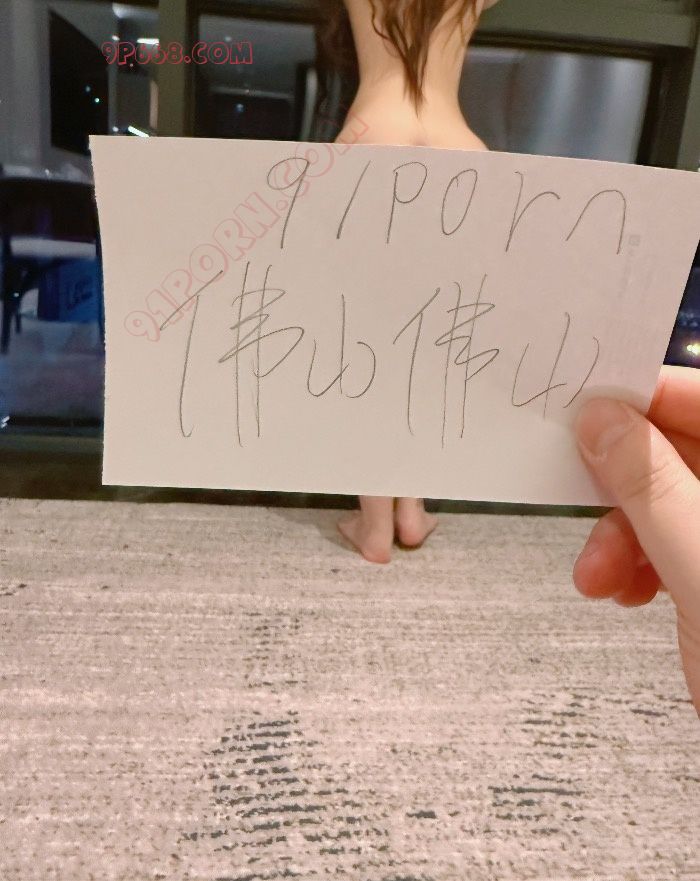 9P668.COM
91porn
91PORN.COM
佛山佛山